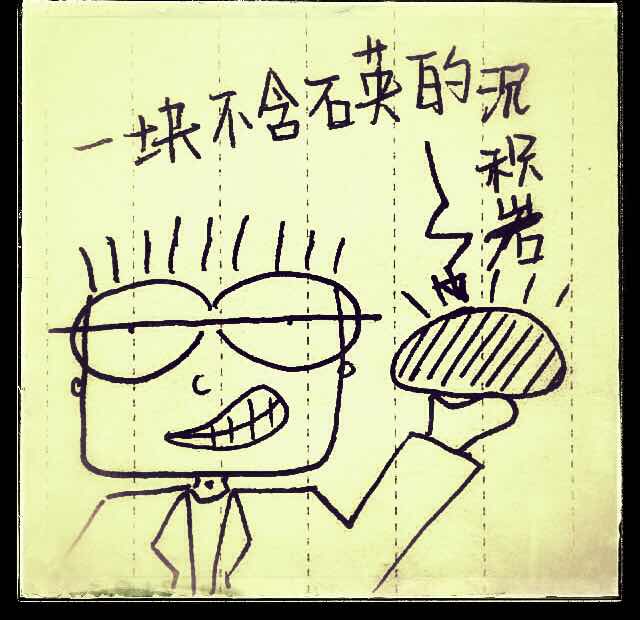 一块不含石英的沉积岩